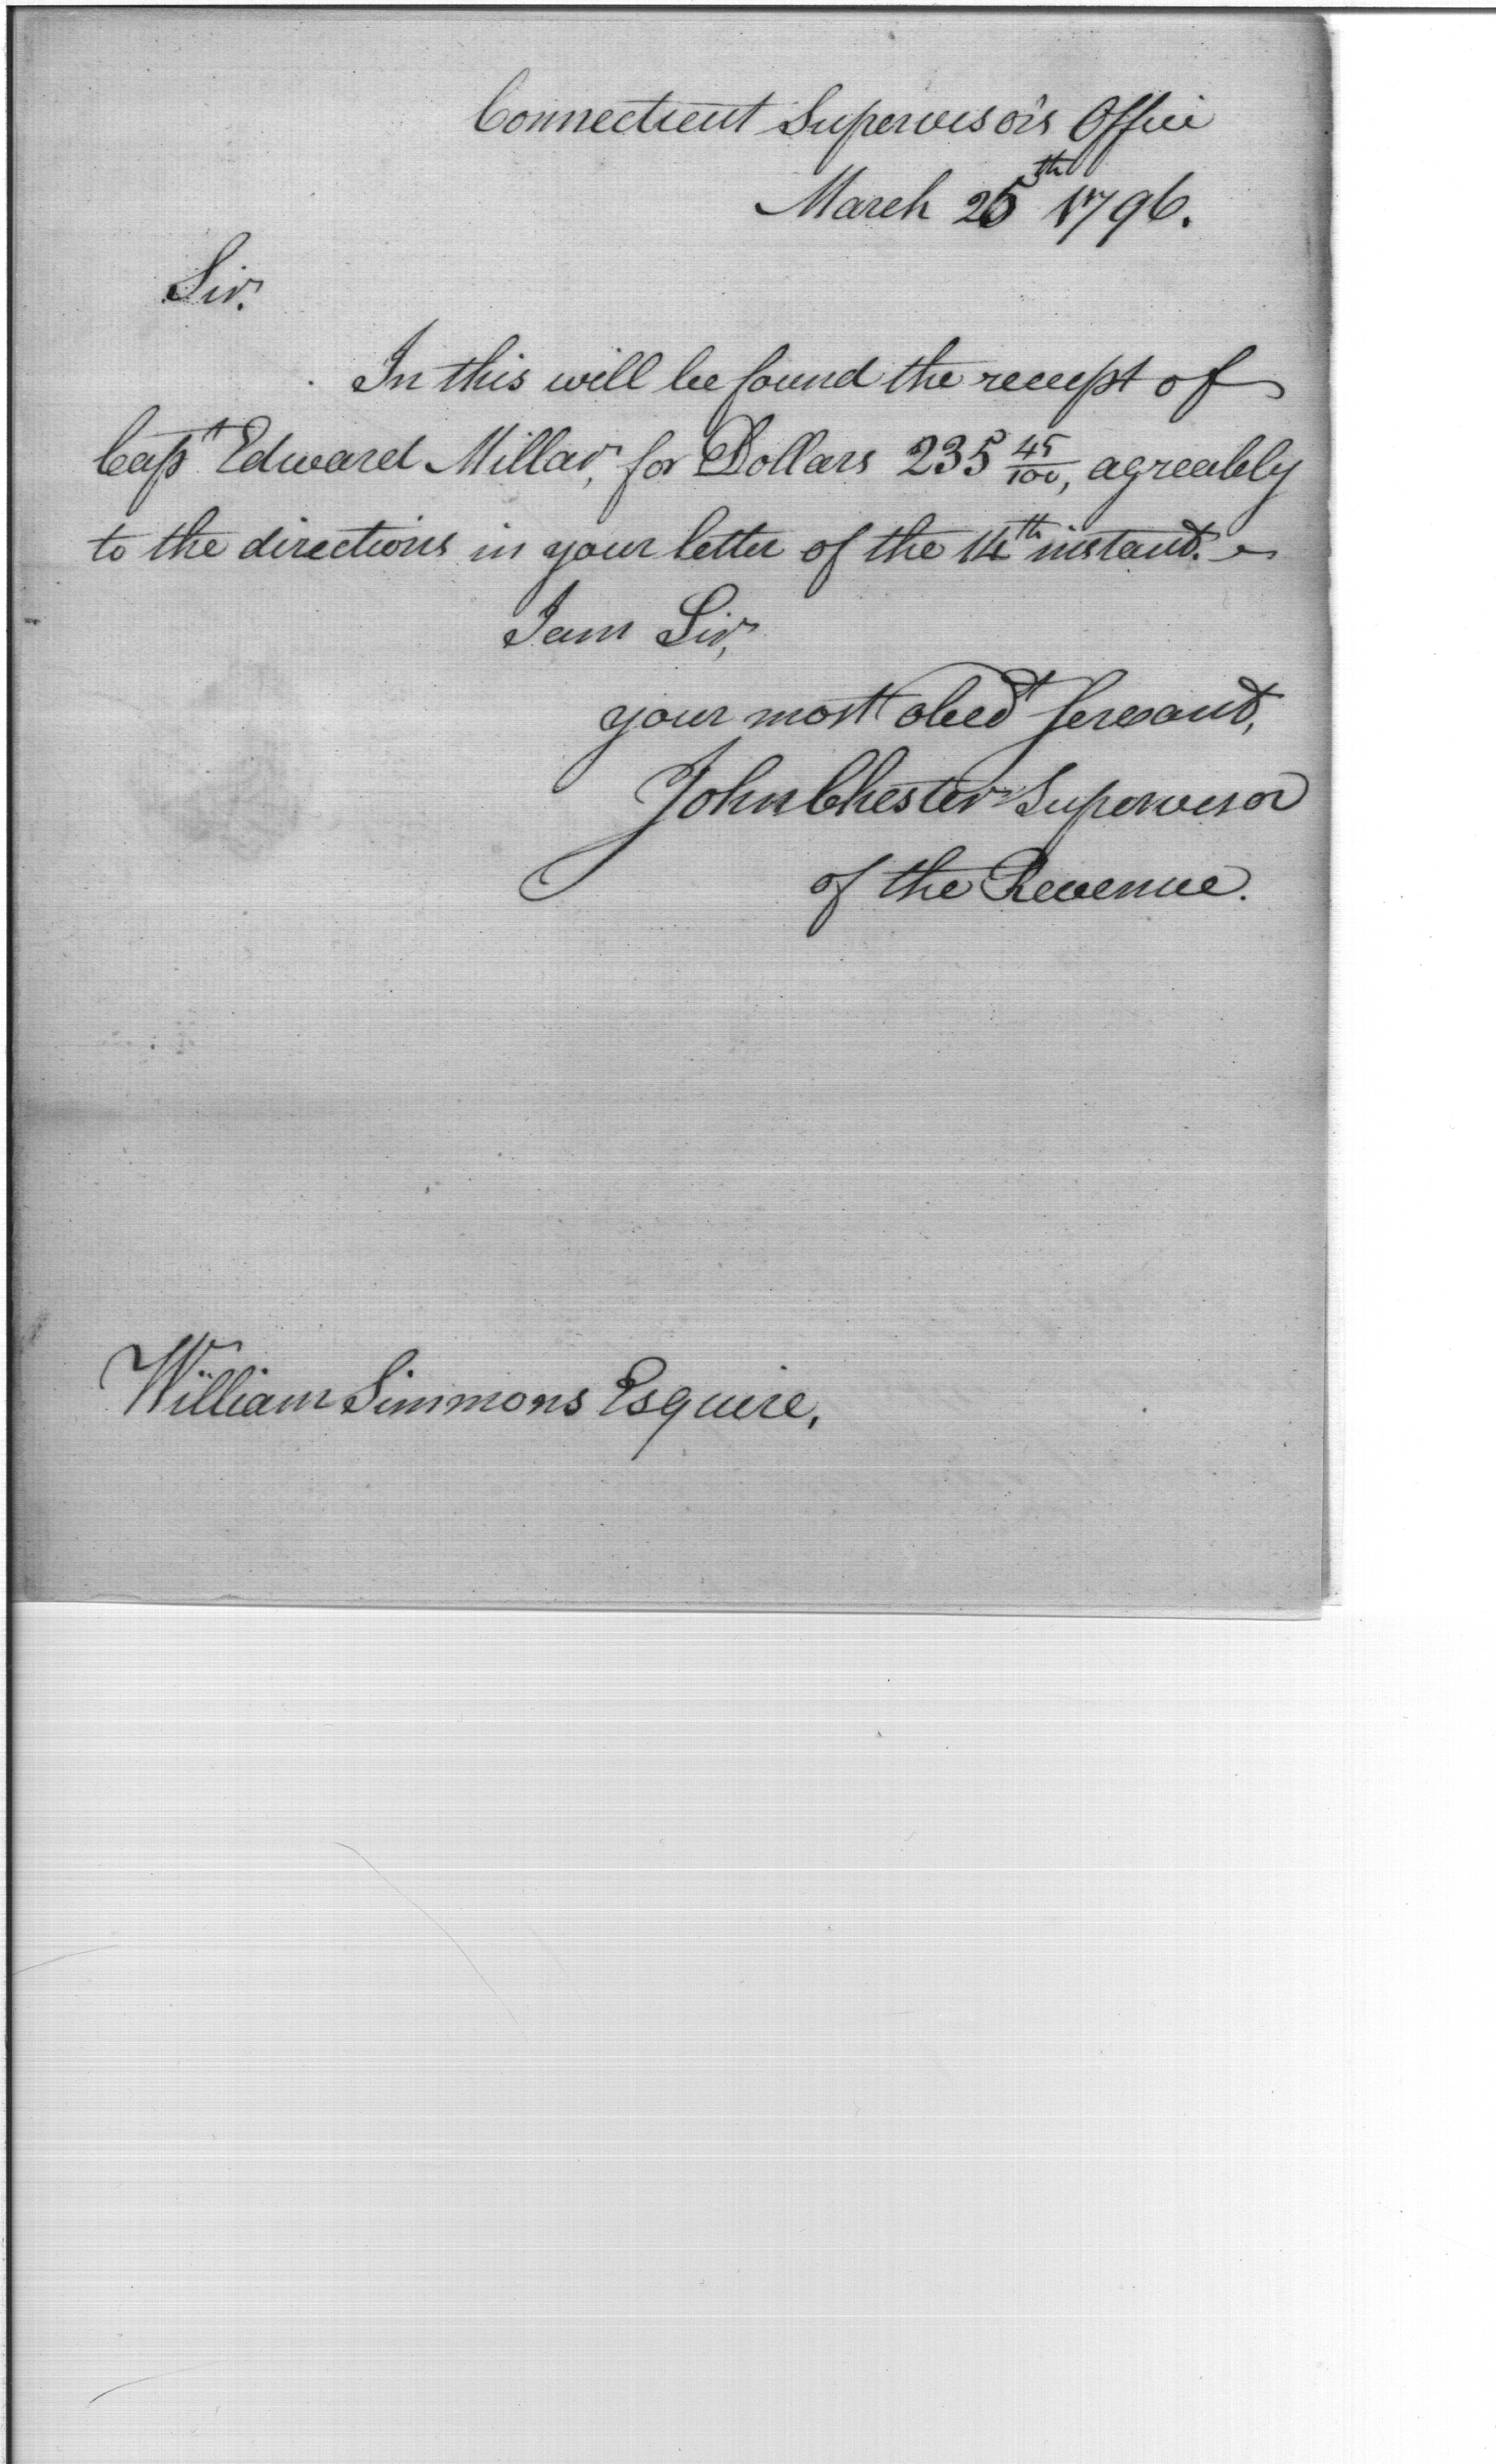 Connecticut Supervisor's Office
March 25th 1796.
Sir.
In this will be found the receipt of
Capt Edward Millar, for Dollars 235 45/100, agreably
to the directions in your letter of the 14th instant.
I am Sir,
your most obedt Servant,
John Chester Supervisor
of the Revenue.
William Simmons Esquire,